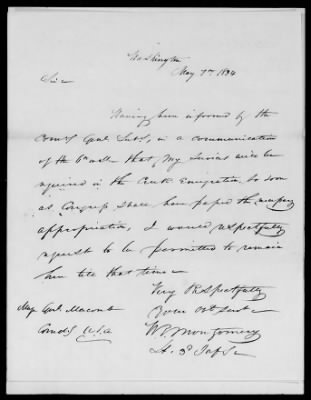 Washington
May 7th 1834
Sir
Having been informed by the
Com'y Genl Subs, in a communication
of the 6th that my services will be
required in the Creek Emigration, so soon
as Congress shall have passed the necessary
appropriation, I would respectfully
request to be permitted to remain
here till that time
Very Respectfully
Your Obt Sert
Maj Genl Macomb
Comd'g U.S.A
W Montgomery
Lt. 3d Infy